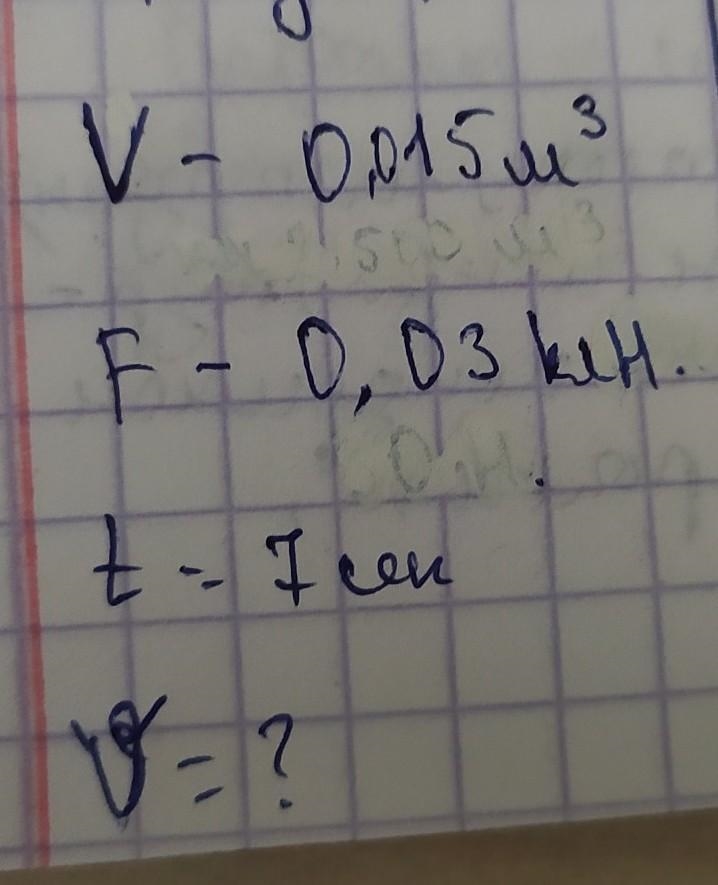 V - 0,015 м³
F - 0,03 кН.
t = 7 сек
V = ?